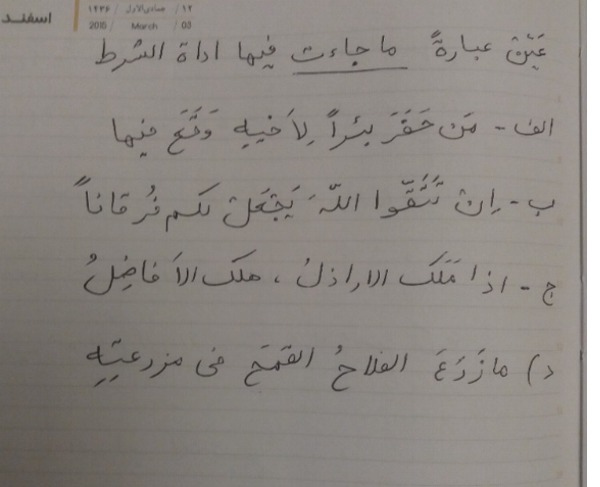 اسفند
١٢ / جمادی‌الاول / ١٤٣٦
2015 / March / 03
عَيِّن عبارةً ما جاءت فيها اداة الشرط
الف - مَن حَفَرَ بئراً لِأخيهِ وَقَعَ فيها
ب - اِن تَتَّقوا اللّهَ يَجْعَلْ لكم فُرقاناً
ج - اذا مَلَكَ الاراذلُ ، هلك الأفاضِلُ
د) ما زَرَعَ الفلاحُ القمحَ فی مزرعتِهِ